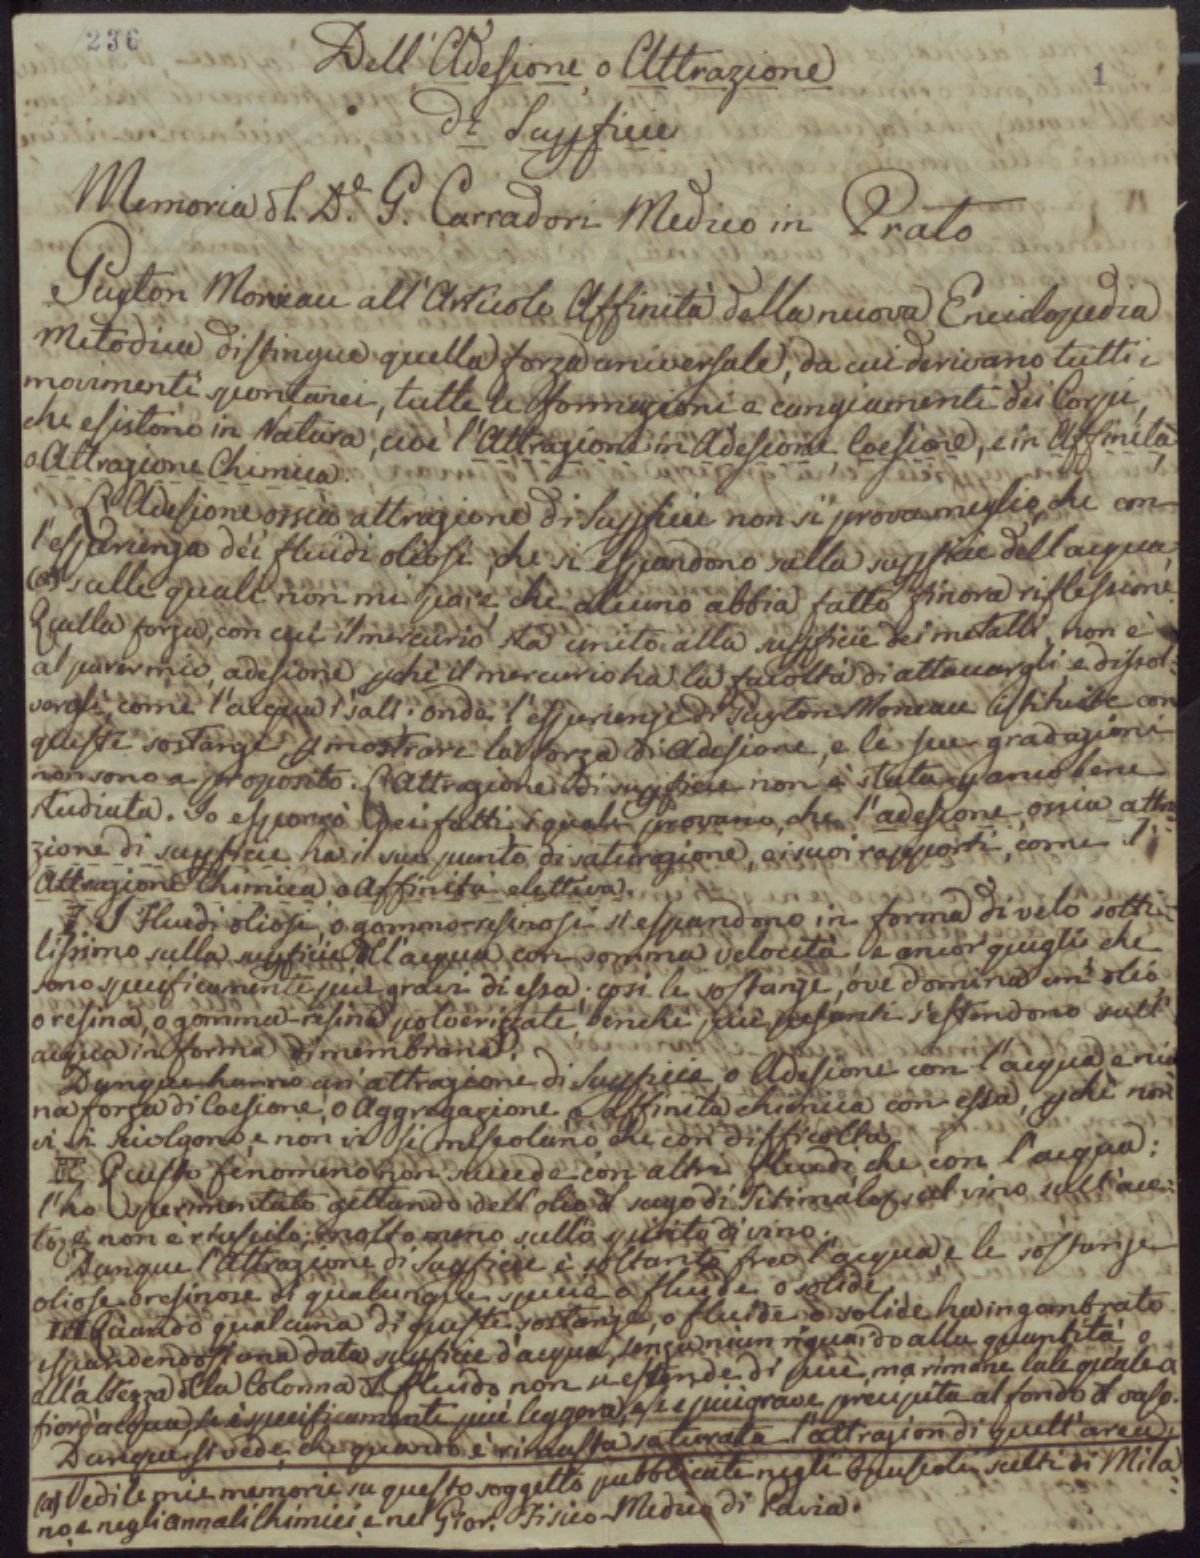 236
1
Dell'Adesione o Attrazione
di Supficie
Memoria del Dr. G. Carradori Medico in Prato
Guyton Morveau all'Articolo Affinità della nuova Enciclopedia
Metodica distingue quella forza universale, da cui derivano tutti i
movimenti spontanei, tutte le formazioni e cangiamenti dei Corpi,
che esistono in Natura, cioè l'Attrazione in Adesione Coesione, e in Affinità,
o Attrazione Chimica.
L'Adesione ossia attrazione di Supficie non si prova meglio, che con
l'esperienza dei fluidi oliosi, che si espandono sulla supficie dell'acqua
(a) sulle quali non mi pare, che alcuno abbia fatto finora riflessione.
Quella forza, con cui il mercurio sta unito alla supficie dei metalli, non è
al parer mio, adesione, pchè il mercurio ha la facoltà di attenuargli e dissol-
vergli, come l'acqua i sali: onde l'esperienze di Guyton Morveau istituite con
queste sostanze p mostrare la forza di Adesione, e le sue gradazioni
non sono a proposito. L'Attrazione di supficie non è stata p anco bene
studiata. Io esporrò dei fatti, i quali provano, che l'adesione ossia attra-
zione di supficie ha il suo punto di saturazione, e i suoi rapporti, come l'
Attrazione Chimica, o Affinità elettiva.
I. I Fluidi oliosi, o gommo-resinosi si espandono in forma di velo sotti-
lissimo sulla supficie dell'acqua con somma velocità e ancor quegli che
sono specificamente più gravi di essa. così le sostanze, ove domina un olio
o resina, o gomma-resina polverizzate, benchè più pesanti s'estendono sull'
acqua in forma di membrana.
Dunque hanno un'attrazione di Supficie, o Adesione con l'acqua, e niu-
na forza di Coesione, o Aggregazione o affinità chimica con essa, pchè non
vi si sciolgono, e non vi si mescolano che con difficoltà.
II. Questo fenomeno non succede con altri fluidi che con l'acqua:
l'ho sperimentato gettando dell'olio o sugo di Titimalo sul vino, sull'ace-
to, e non è riuscito; molto meno sullo spirito di vino.
Dunque l'Attrazione di Supficie è soltanto fra l'acqua, e le sostanze
oliose o resinose di qualunque specie o fluide o solide.
III. Quando qualcuna di queste sostanze, o fluide o solide ha ingombrato
espandendosi una data supficie d'acqua, senza niun riguardo alla quantità, o
all'altezza della Colonna del fluido non si estende di più, ma rimane tale quale a
fior d'acqua, se è specificamente più leggera, e se è più grave precipita al fondo del vaso.
Dunque si vede, che quando è rimasta saturata l'attrazion di quell'area,
(a) Vedi le mie memorie su questo soggetto pubblicate negli Opuscoli scelti di Mila-
no, e negli annali Chimici, e nel Gior. Fisico-Medico di Pavia.